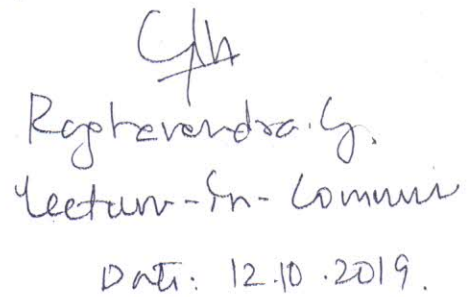 Raghavendra. G.
Lecturer-In-Commerce
Date: 12.10.2019.